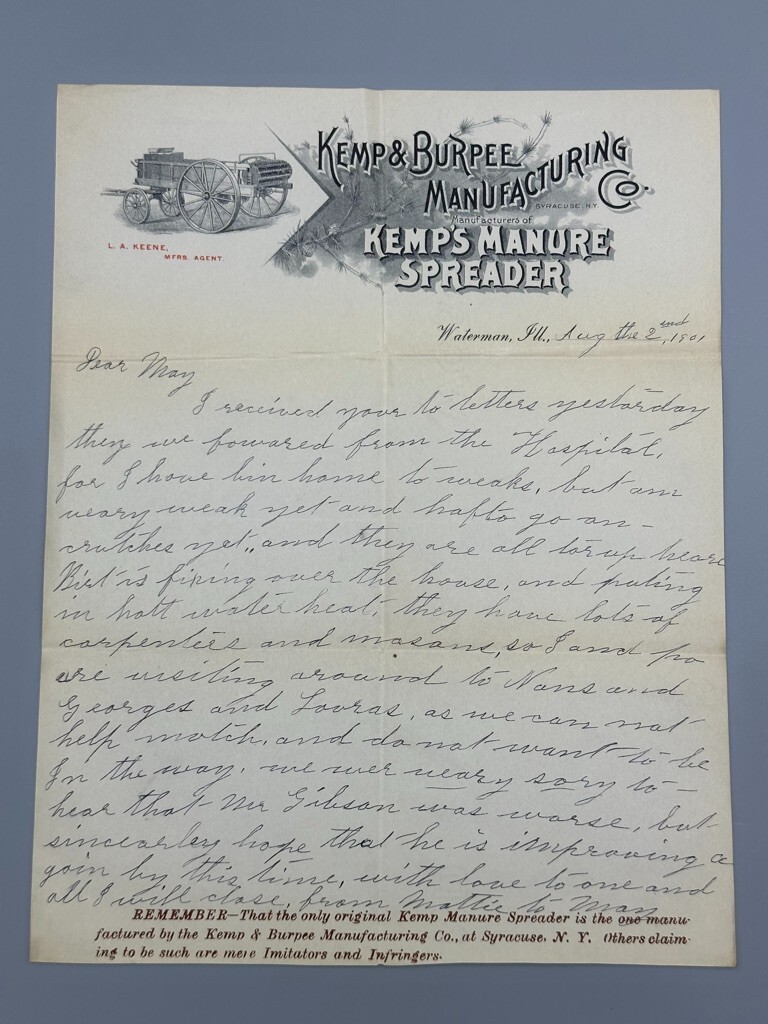 KEMP & BURPEE
MANUFACTURING CO.
SYRACUSE, N.Y.
Manufacturers of
KEMP'S MANURE
SPREADER
L. A. KEENE,
MFRS. AGENT.
Waterman, Ill., Aug the 2nd, 1901
Dear May
I received your to letters yestarday
they we fowared from the Hospital,
for I have bin home to weaks, but am
veary weak yet and hafto go on-
crutches yet,, and they are all torup heare
Birt is fixing over the house, and puting
in hott water heat, they have lots of
carpenters and masons, so I and pa
are visiting around to Nans and
Georges and Lovras, as we can not
help mutch, and do not want to be
In the way. we wer veary sory to-
hear that Mr Gibson was worse, but
sincearley hope that he is improving a
goin by this time, with love to one and
all I will close, from Mattie to May
REMEMBER—That the only original Kemp Manure Spreader is the one manu-
factured by the Kemp & Burpee Manufacturing Co., at Syracuse, N. Y. Others claim-
ing to be such are mere Imitators and Infringers.